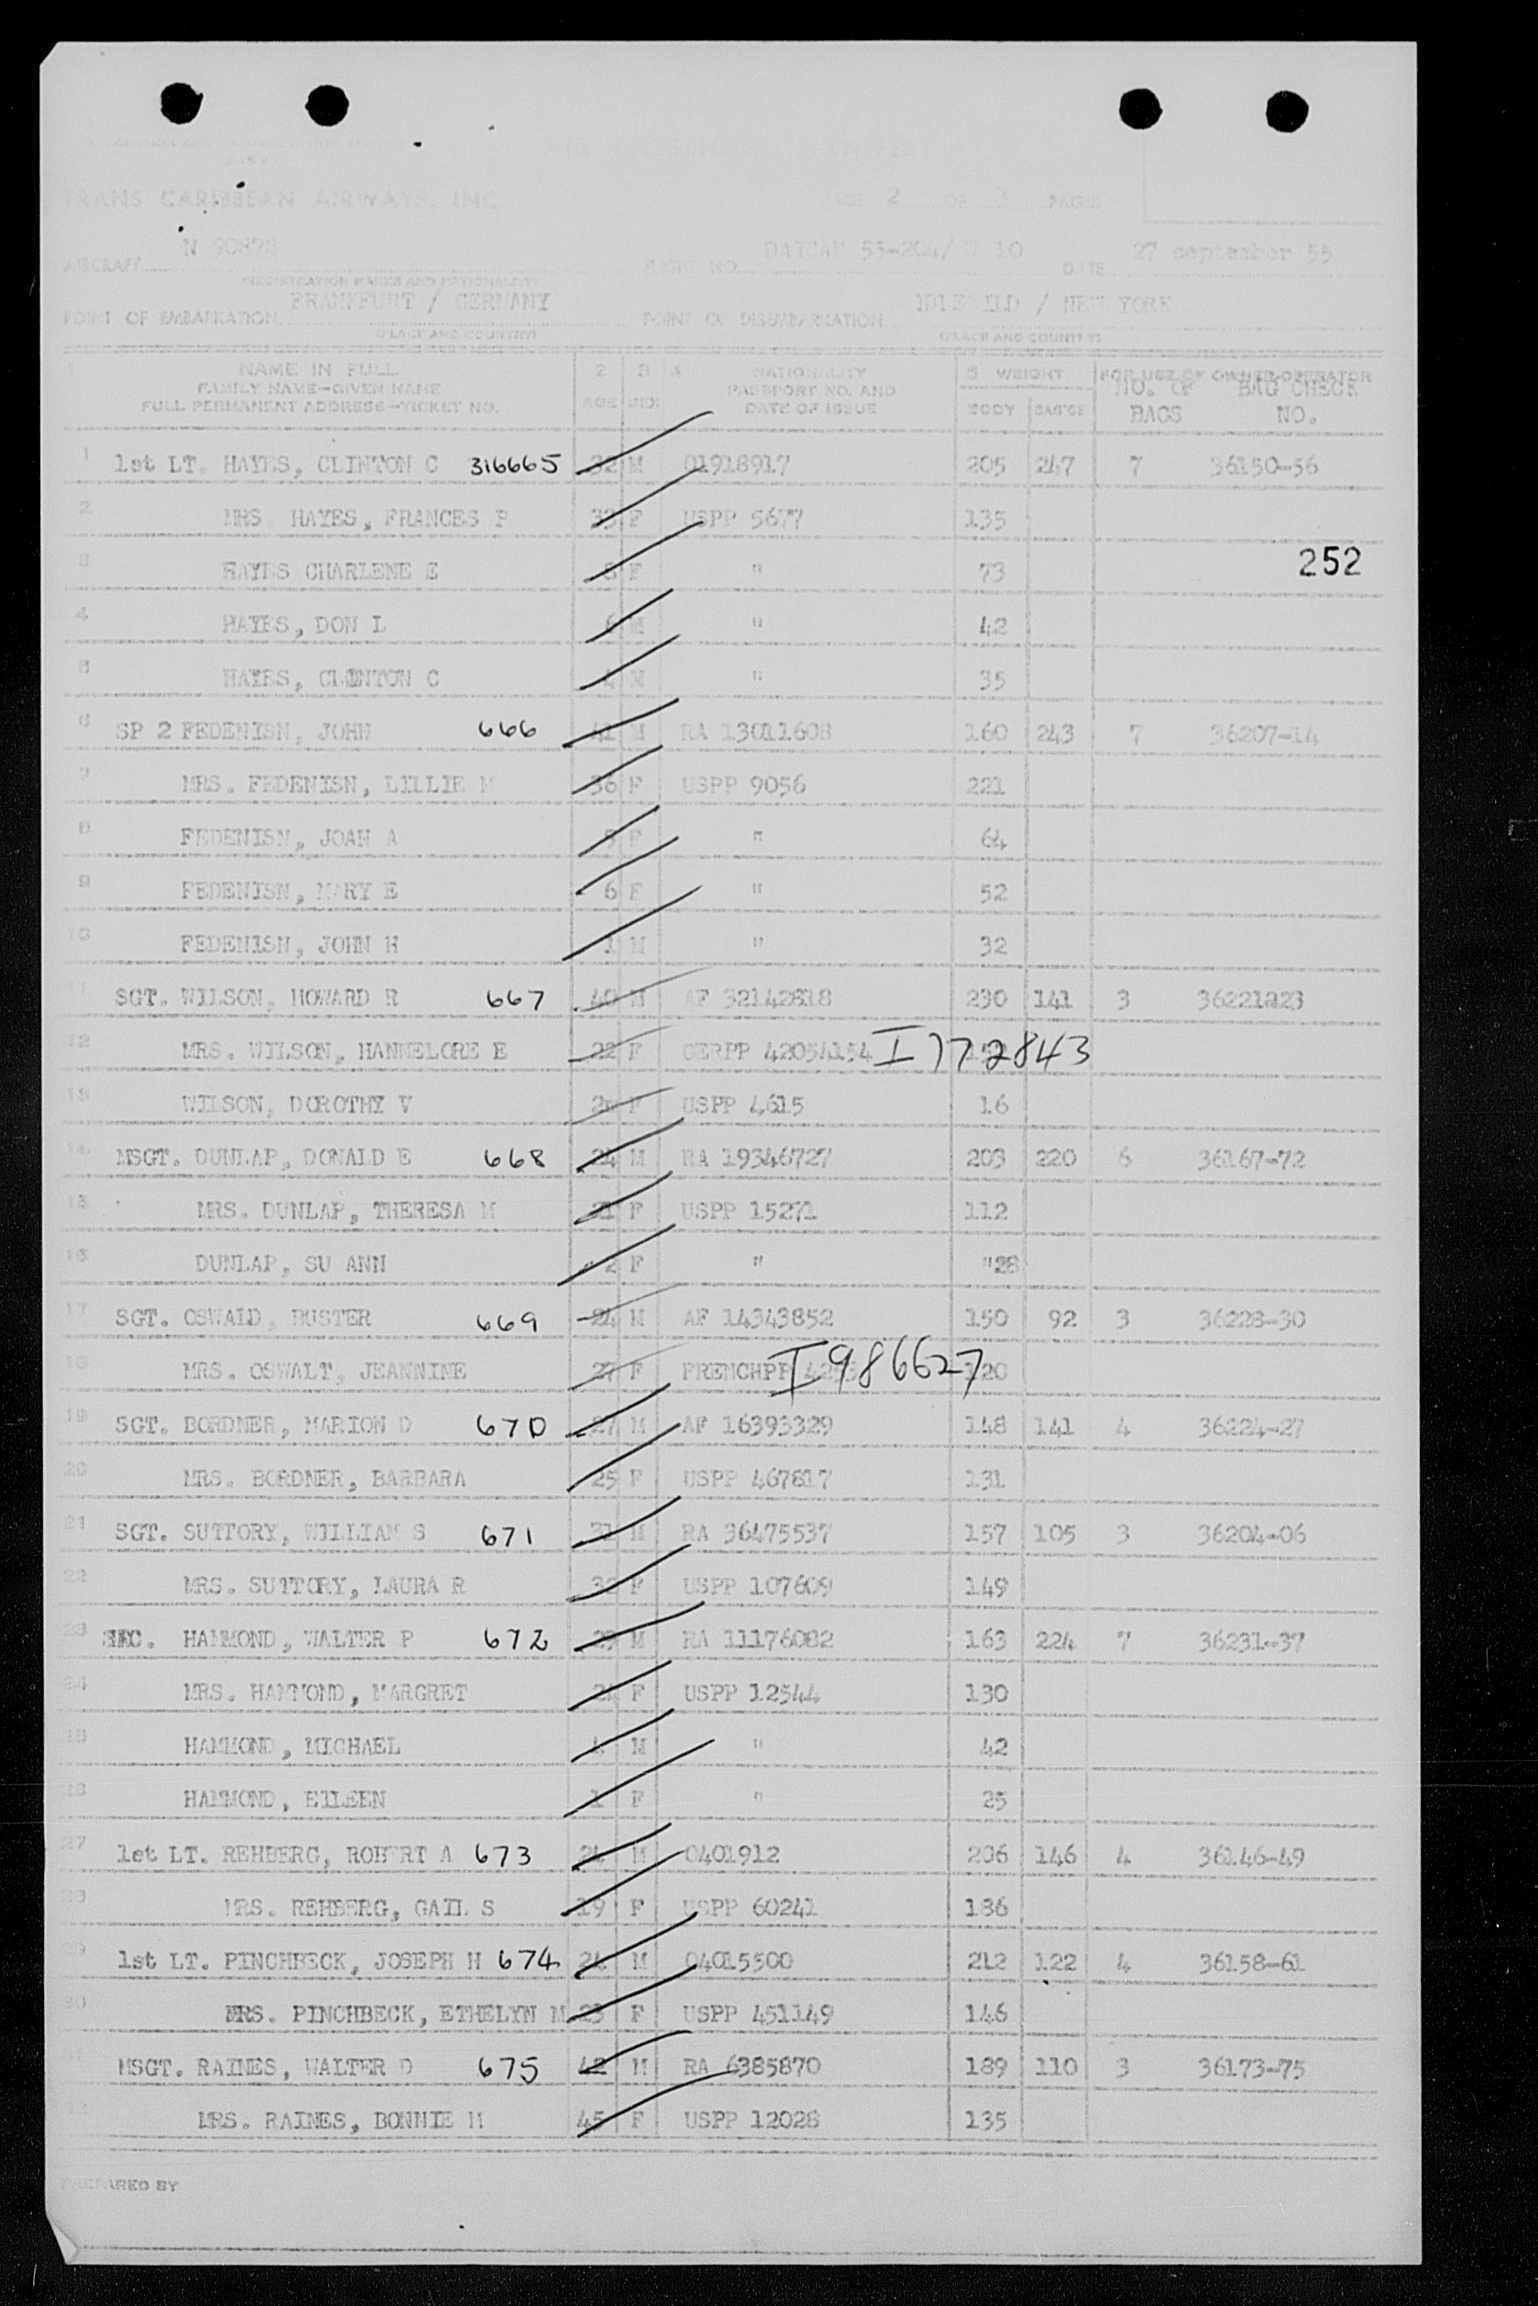 TRANS CARIBBEAN AIRWAYS, INC.
PAGE 2 OF 3 PAGES
AIRCRAFT N 90878
DATCAM 55-204/ 10
DATE 27 september 55
(REGISTRATION MARKS AND NATIONALITY)
POINT OF EMBARKATION FRANKFURT / GERMANY
POINT OF DISEMBARKATION IDLEWILD / NEW YORK
(PLACE AND COUNTRY) (PLACE AND COUNTRY)
1 NAME IN FULL 2 3 4 NATIONALITY 5 WEIGHT FOR USE OF OWNER-OPERATOR
FAMILY NAME-GIVEN NAME PASSPORT NO. AND NO. OF BAG CHECK
FULL PERMANENT ADDRESS-TICKET NO. AGE SEX DATE OF ISSUE BODY BAG'GE BAGS NO.
1 1st LT. HAYES, CLINTON C 316665 32 M 01918917 205 247 7 36150-56
2 MRS HAYES, FRANCES P 33 F USPP 5677 135
3 HAYES CHARLENE E 8 F " 73
252
4 HAYES, DON L 6 M " 42
5 HAYES, CLINTON C 4 M " 35
6 SP 2 FEDENISN, JOHN 666 41 M RA 13011608 160 243 7 36207-14
7 MRS. FEDENISN, LILLIE M 36 F USPP 9056 221
8 FEDENISN, JOAN A F " 64
9 FEDENISN, MARY E 6 F " 52
10 FEDENISN, JOHN H 1 M " 32
11 SGT. WILSON, HOWARD R 667 40 M AF 32142818 230 141 3 36221223
12 MRS. WILSON, HANNELORE E 22 F GERPP 42054154 I772843
13 WILSON, DOROTHY V F USPP 4615 16
14 MSGT. DUNLAP, DONALD E 668 24 M RA 19346727 203 220 6 36167-72
15 MRS. DUNLAP, THERESA M 21 F USPP 15271 112
16 DUNLAP, SU ANN 2 F " "28
17 SGT. OSWALD, BUSTER 669 24 M AF 14343852 150 92 3 36228-30
18 MRS. OSWALT, JEANNINE 27 F FRENCHPP I986627 120
19 SGT. BORDNER, MARION D 670 27 M AF 16393329 148 141 4 36224-27
20 MRS. BORDNER, BARBARA 25 F USPP 467817 131
21 SGT. SUTTORY, WILLIAM S 671 31 M RA 36475537 157 105 3 36204-06
22 MRS. SUTTORY, LAURA R 32 F USPP 107609 149
23 HAMMOND, WALTER P 672 M RA 11176082 163 224 7 36231-37
24 MRS. HAMMOND, MARGRET F USPP 12544 130
25 HAMMOND, MICHAEL M " 42
26 HAMMOND, EILEEN 1 F " 25
27 1st LT. REHBERG, ROBERT A 673 24 M 0401912 206 146 4 36146-49
28 MRS. REHBERG, GAIL S 19 F USPP 60241 136
29 1st LT. PINCHBECK, JOSEPH H 674 24 M 04015500 212 122 4 36158-61
30 MRS. PINCHBECK, ETHELYN M 23 F USPP 451149 146
MSGT. RAINES, WALTER D 675 42 M RA 6385870 189 110 3 36173-75
MRS. RAINES, BONNIE M 45 F USPP 12028 135
PREPARED BY